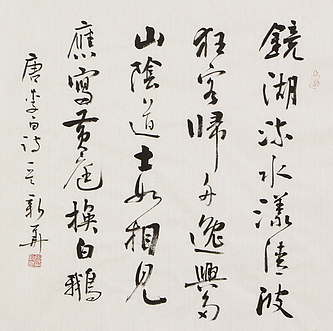 鏡湖流水漾清波
狂客歸舟逸興多
山陰道士如相見
應寫黃庭換白鵝
唐李白詩一首 新